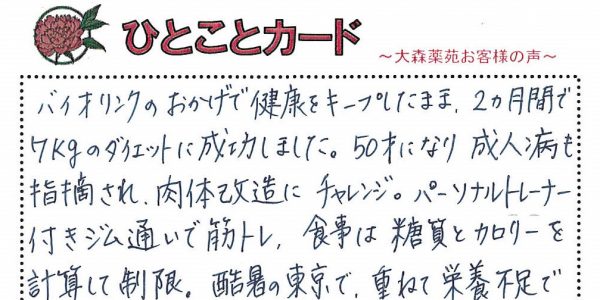 ひとことカード
～大森薬苑お客様の声～
バイオリンクのおかげで健康をキープしたまま、2ヵ月間で
7kgのダイエットに成功しました。50才になり成人病も
指摘され、肉体改造にチャレンジ。パーソナルトレーナー
付きジム通いで筋トレ、食事は糖質とカロリーを
計算して制限。酷暑の東京で、重ねて栄養不足で